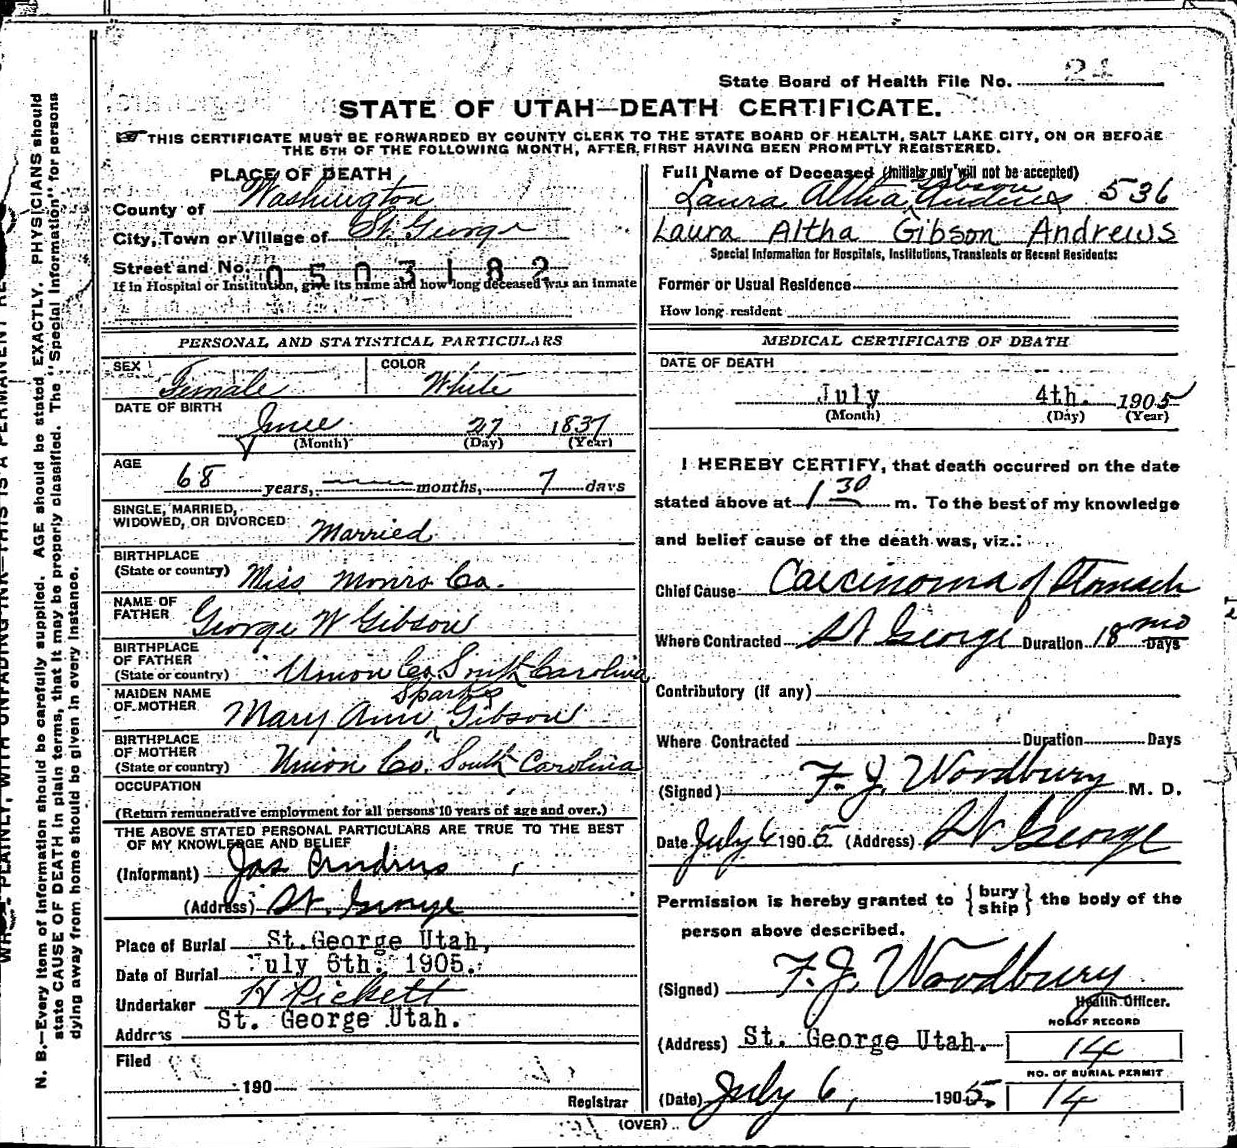 State Board of Health File No. 21
STATE OF UTAH—DEATH CERTIFICATE.
THIS CERTIFICATE MUST BE FORWARDED BY COUNTY CLERK TO THE STATE BOARD OF HEALTH, SALT LAKE CITY, ON OR BEFORE
THE 5TH OF THE FOLLOWING MONTH, AFTER FIRST HAVING BEEN PROMPTLY REGISTERED.
PLACE OF DEATH
County of Washington
City, Town or Village of St. George
Street and No. 0503182
If in Hospital or Institution, give its name and how long deceased was an inmate
PERSONAL AND STATISTICAL PARTICULARS
SEX Female COLOR White
DATE OF BIRTH
June 27 1837
(Month) (Day) (Year)
AGE
68 years, months, 7 days
SINGLE, MARRIED,
WIDOWED, OR DIVORCED Married
BIRTHPLACE
(State or country) Miss Monro Co.
NAME OF
FATHER George W Gibson
BIRTHPLACE
OF FATHER
(State or country) Union Co. South Carolina
MAIDEN NAME
OF MOTHER Mary Ann Sparks Gibson
BIRTHPLACE
OF MOTHER
(State or country) Union Co. South Carolina
OCCUPATION
(Return remunerative employment for all persons 10 years of age and over.)
THE ABOVE STATED PERSONAL PARTICULARS ARE TRUE TO THE BEST
OF MY KNOWLEDGE AND BELIEF
(Informant) Jas Andrus
(Address) St. George
Place of Burial St. George Utah,
Date of Burial July 6th. 1905.
Undertaker H Pickett
Address St. George Utah.
Filed
190
Registrar
Full Name of Deceased (Initials only will not be accepted)
Laura Altha Gibson Andrus 536
Laura Altha Gibson Andrews
Special Information for Hospitals, Institutions, Transients or Recent Residents:
Former or Usual Residence
How long resident
MEDICAL CERTIFICATE OF DEATH
DATE OF DEATH
July 4th. 1905
(Month) (Day) (Year)
I HEREBY CERTIFY, that death occurred on the date
stated above at 1 30 m. To the best of my knowledge
and belief cause of the death was, viz.:
Chief Cause Carcinoma of Stomach
Where Contracted St George Duration 18 mo Days
Contributory (if any)
Where Contracted Duration Days
(Signed) F. J. Woodbury M. D.
Date July 6 1905. (Address) St George
Permission is hereby granted to {bury ship} the body of the
person above described.
(Signed) F. J. Woodbury
Health Officer.
NO. OF RECORD
(Address) St. George Utah. 14
NO. OF BURIAL PERMIT
(Date) July 6, 1905. 14
(OVER)
N. B.—Every item of information should be carefully supplied. AGE should be stated EXACTLY. PHYSICIANS should
state CAUSE OF DEATH in plain terms, that it may be properly classified. The "Special Information" for persons
dying away from home should be given in every instance.
PLAINLY, WITH UNFADING INK—THIS IS A PERMANENT